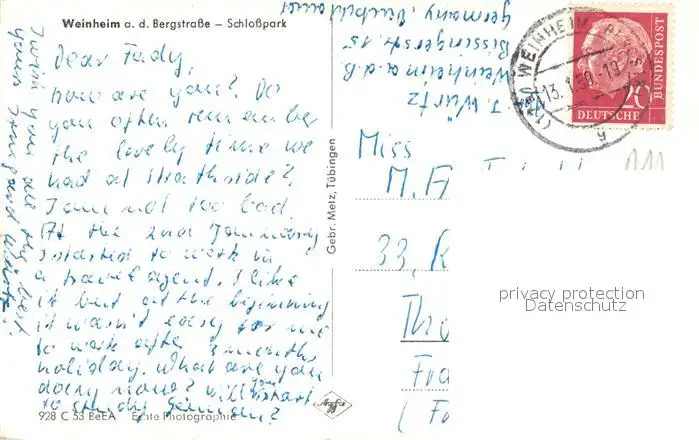 Weinheim a. d. Bergstraße – Schloßpark
Dear Fady,
how are you? Do
you often remember
the lovely time we
had at Strathside?
I am not too bad.
At the 2nd January
I started to work in
a travel agent. I like
it but at the beginning
it wasn't easy for me
to work after 3 months
holiday. What are you
doing now? Will you start
to study German?
I wish you all my best
yours Irmgard Würtz.
928 C 53 BeEA Echte Photographie
Agfa
Gebr. Metz, Tübingen
J. Würtz
Weinheim a.d.B
Bissingerstr. 15
Germany, Deutschland
WEINHEIM
13.1.59-12
g
20
DEUTSCHE
BUNDESPOST
A11
Miss
M. F
33, K
Tho
Fra
( Fo
privacy protection
Datenschutz